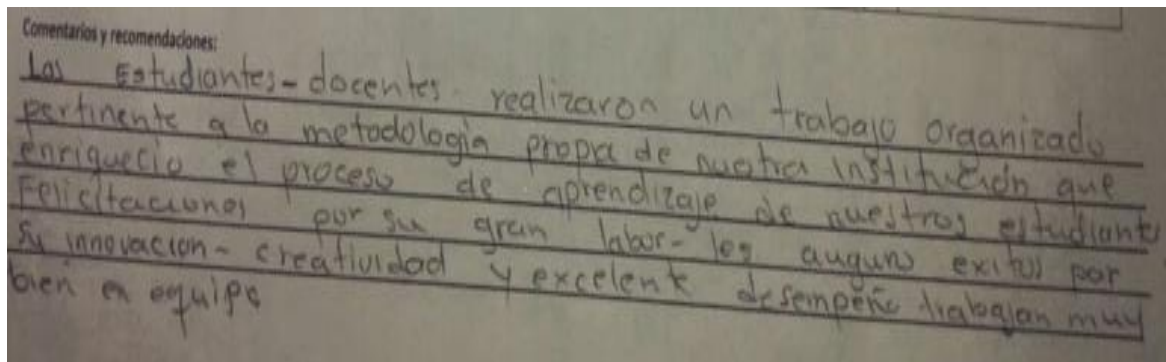 Comentarios y recomendaciones:
Los Estudiantes-docentes realizaron un trabajo organizado
pertinente a la metodologia propia de nuestra institución que
enriquecio el proceso de aprendizaje de nuestros estudiantes
Felicitaciones por su gran labor- les auguro exitos por
Su innovacion- creatividad y excelente desempeño trabajan muy
bien en equipo